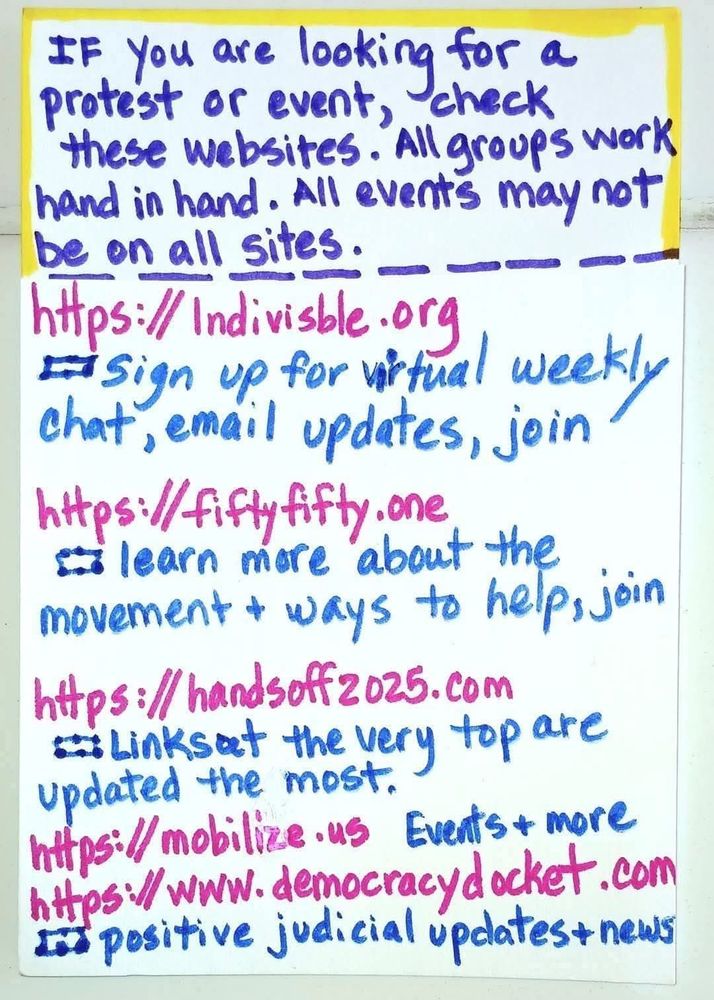 IF you are looking for a
protest or event, check
these websites. All groups work
hand in hand. All events may not
be on all sites.
https://Indivisble.org
Sign up for virtual weekly
chat, email updates, join
https://fiftyfifty.one
learn more about the
movement + ways to help, join
https://handsoff2025.com
Links at the very top are
updated the most.
https://mobilize.us Events + more
https://www.democracydocket.com
positive judicial updates + news